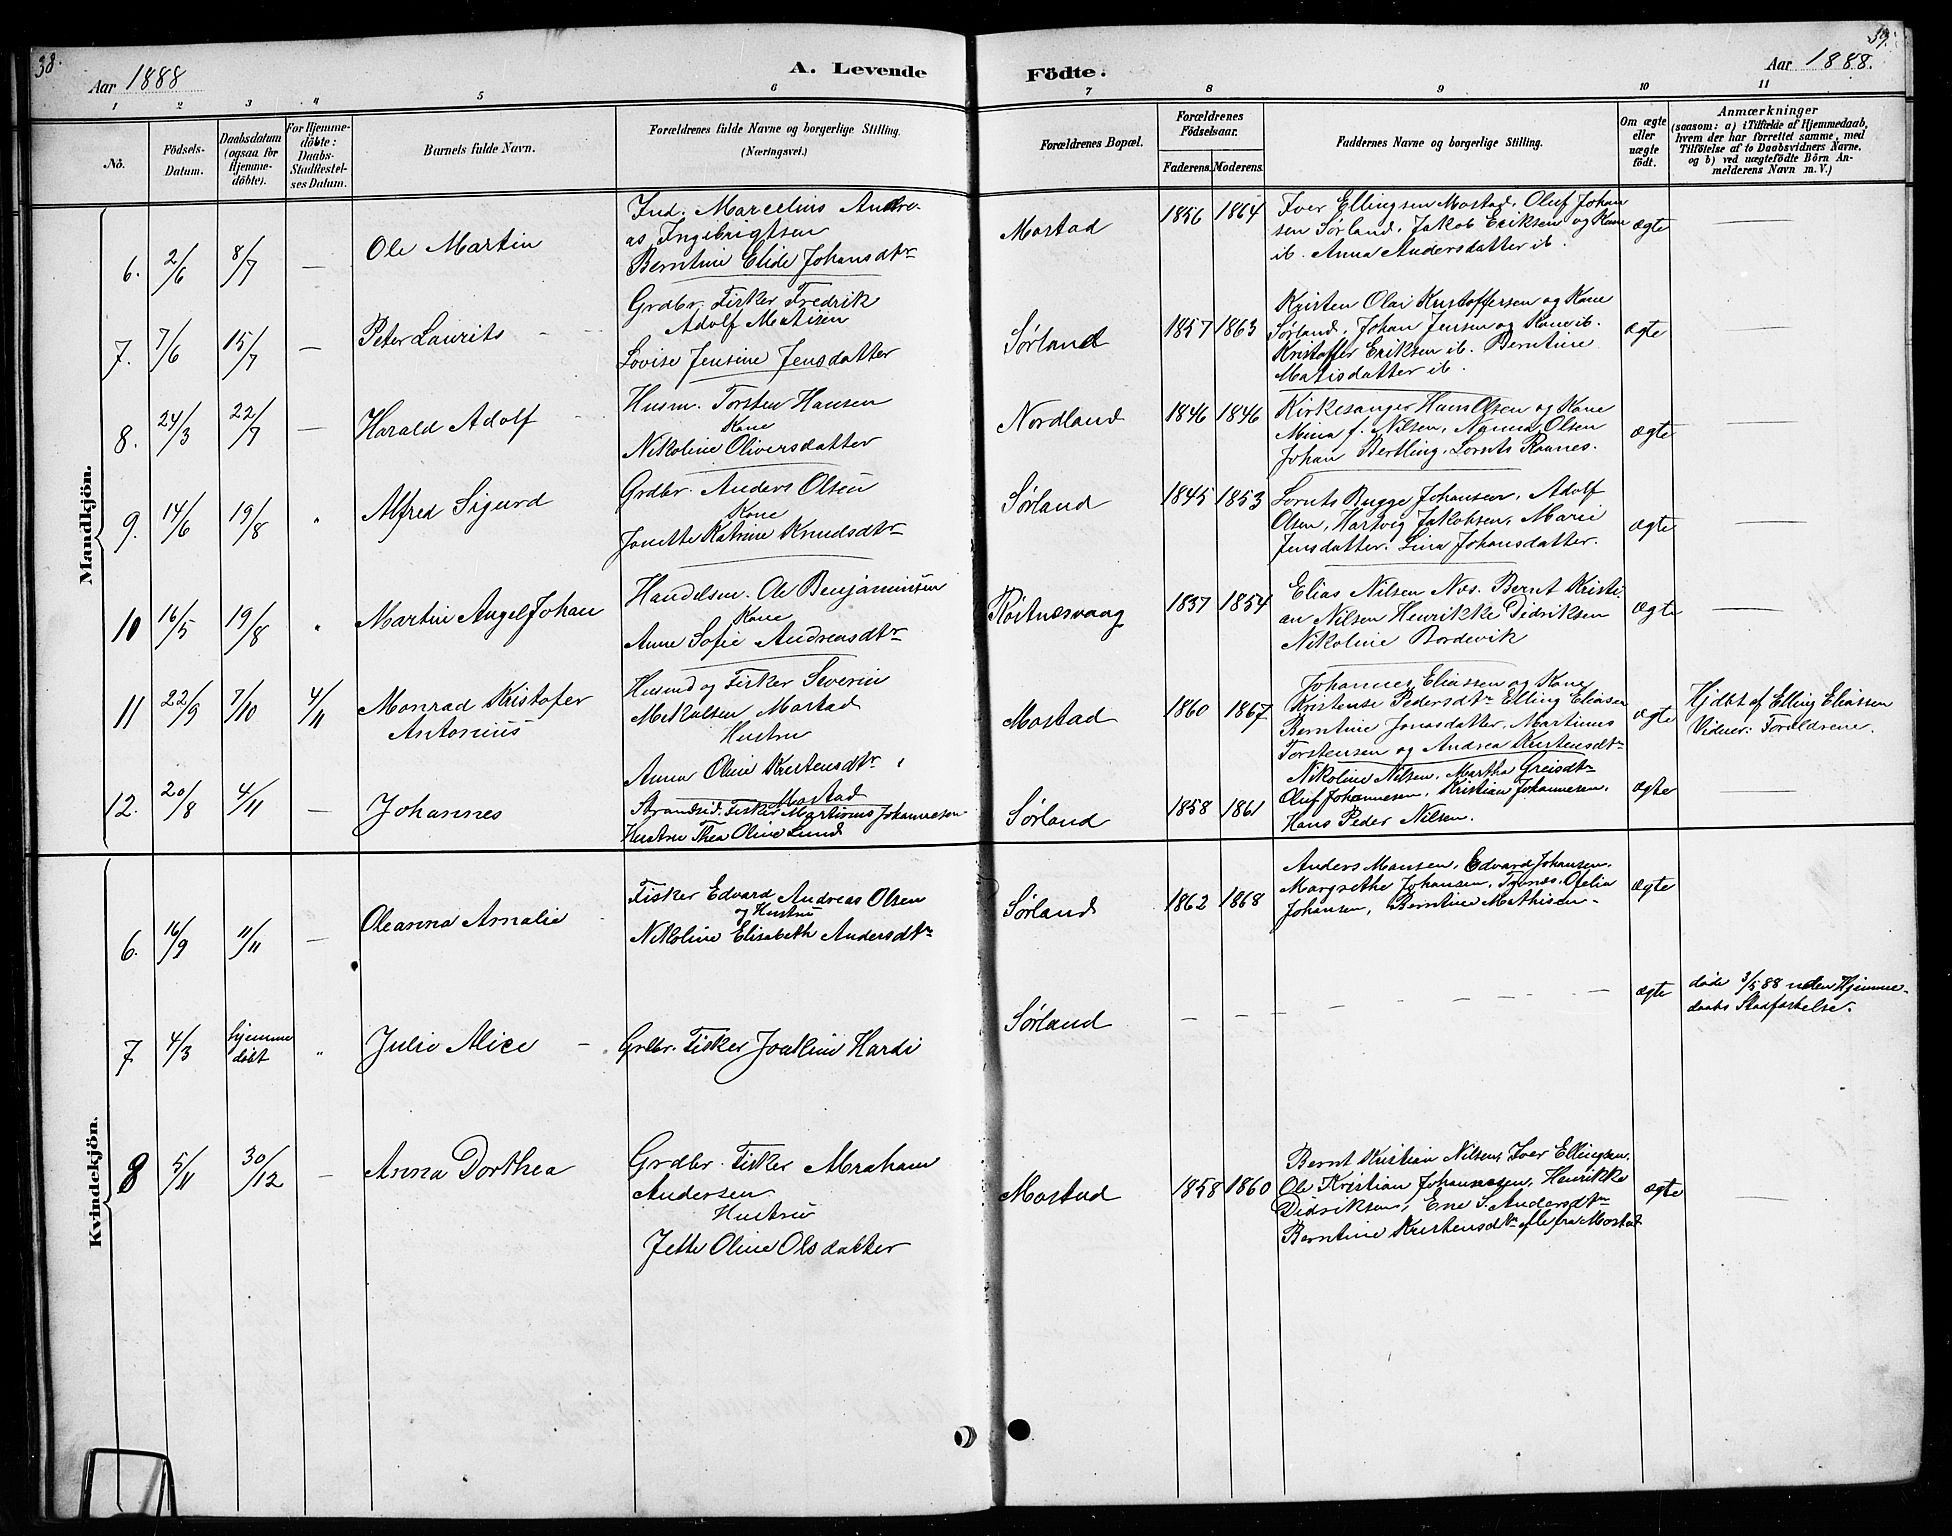 38.
Aar 1888
A. Levende
Födte.
39.
Aar 1888.
1 2 3 4 5 6 7 8 9 10 11
No.
Födsels-
Datum.
Daabsdatum
(ogsaa for
Hjemme-
döbte).
For Hjemme-
döbte:
Daabs-
Stadfæstel-
ses Datum.
Barnets fulde Navn.
Forældrenes fulde Navne og borgerlige Stilling.
(Næringsvei.)
Forældrenes Bopæl.
Forældrenes
Födselsaar.
Faderens. Moderens.
Faddernes Navne og borgerlige Stilling.
Om ægte
eller
uægte
født.
Anmærkninger
(saasom: a) i Tilfælde af Hjemmedaab,
hvem der har forrettet samme, med
Tilföielse af to Daabsvidners Navne,
og b) ved uægtefödte Börn An-
melderens Navn m. V.)
Mandkjön.
6. 2/6 8/7 — Ole Martin
Ind. Marcelius Andre-
as Ingebrigtsen
Berntine Elide Johansdtr
Mostad 1856 1864
Iver Ellingsen Mostad, Oluf Johan
sen Sørland, Jakob Eriksen og Kone
ib. Anna Andersdatter ib.
ægte —
7. 7/6 15/7 — Peter Laurits
Grdbr. Fisker Fredrik
Adolf Matisen
Lovise Jensine Jensdatter
Sørland 1857 1863
Kristen Olai Kristoffersen og Kone
Sørland, Johan Jensen og Kone ib.
Kristoffer Eriksen ib. Berntine
Matisdatter ib.
ægte —
8. 24/3 22/7 — Harald Adolf
Husm. Torsten Hansen
Kone
Nikoline Oliversdatter
Nordland 1846 1846
Kirkesanger Hans Olsen og Kone
Mina f. Nilsen, Nanna Olsen
Johan Bertling, Lornts Raanes.
ægte —
9. 14/6 19/8 " Alfred Sigurd
Grdbr. Anders Olsen
Kone
Jonette Katrine Knudsdtr
Sørland 1845 1853
Lornts Bugge Johansen, Adolf
Olsen, Hartvig Jakobsen, Marie
Jensdatter, Lina Johansdatter.
ægte —
10 16/5 19/8 " Martin Angel Johan
Handelsm. Ole Benjaminsen
Kone
Anne Sofie Andreasdtr
Røitnesvaag 1837 1854
Elias Nilsen Næs. Bernt Kristi-
an Nilsen Henrikke Didriksen
Nikoline Bordevik
ægte —
11 22/9 7/10 4/11 Monrad Kristofer
Antonius
Husmd og Fisker Severin
Mikalsen Mostad
Hustru
Anna Oline Kristensdtr
Mostad
Mostad 1860 1867
Johannes Eliassen og Kone
Kristense Pedersdtr Elling Eliasen
Berntine Jonasdatter, Martinus
Torstensen og Andrea Kristensdtr
ægte
Hjdbt af Elling Eliassen
Vidner: Forældrene.
12. 20/8 4/11 — Johannes
Strandsid. Fisker Martinus Johannesen
Hustru Thea Oline Lund
Sørland 1858 1861
Nikoline Nilsen, Martha Greisdtr
Oluf Johannesen, Kristian Johannesen,
Hans Peder Nilsen.
ægte —
Kvindekjön.
6. 16/9 11/11 — Oleanna Amalie
Fisker Edvard Andreas Olsen
og Hustru
Nikoline Elisabeth Andersdtr
Sørland 1862 1868
Anders Monsen, Edvard Johansen,
Margrethe Johansen, Ofelia
Johansen, Berntine Mathisen
ægte
7 4/3 hjemme
døbt " Julie Alice —
Grdbr. Fisker Joakim Hardi
Sørland — — —
ægte
døde 3/5 88 uden Hjemme-
daabs Stadfæstelse.
8 5/11 30/12 — Anna Dorthea
Grdbr. Fisker Abraham
Andersen
Hustru
Jette Oline Olsdatter
Mostad 1858 1860
Bernt Kristian Nilsen, Iver Ellingsen,
Ole Kristian Johannesen, Henrikke
Didriksens, Ene S. Andersdtr
Berntine Kristensdtr alle fra Mostad
ægte —